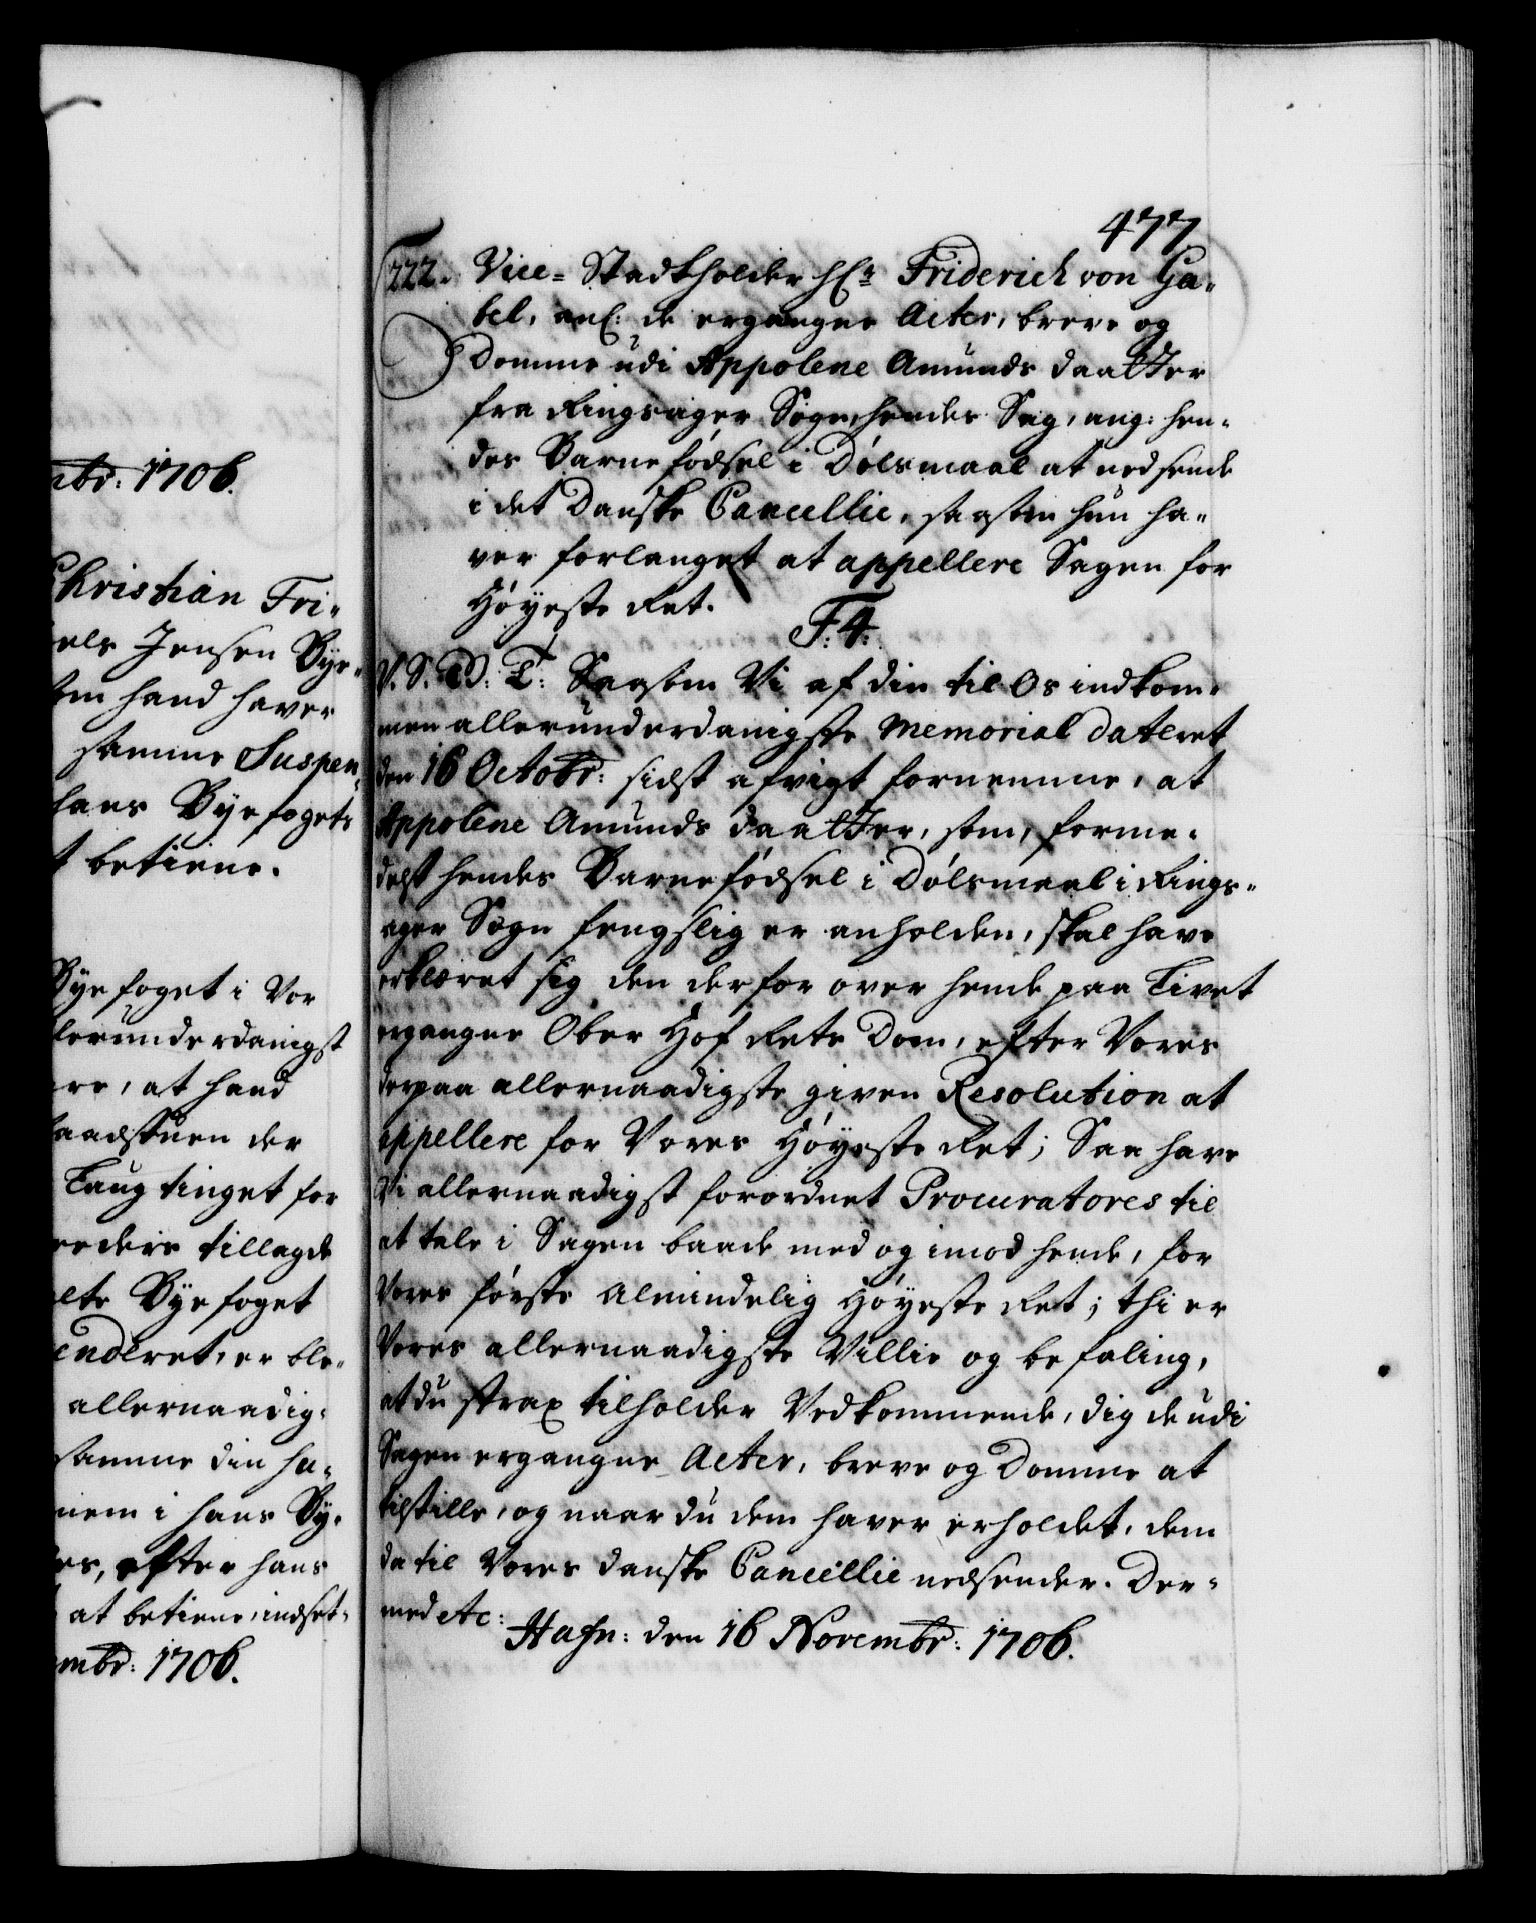 mbr: 1706.
Christian Fri-
els Jensen Bye-
som hand haver
samme Suspen-
hans Byefogets
t betiene.
Byefoget i Vor
lerunderdanigst
ere, at hand
Raadstuen der
Laugtinget for
tillagde
lte Byefoget
enderet, er ble-
allernaadig-
samme din ha-
nem i hans By-
es, efter hans
at betiene, indset-
mbr: 1706.
477
222. Vice-Stadtholder Hr. Friderich von Ga-
bel, anl: de ergangne Acter, breve og
Domme udi Appolene Amunds daatter
fra Ringsager Sogn, hendes Sag, ang: hen-
des Barnefødsel i Dølsmaal at nedsende
i det Danske Cancellie, saasom hun ha-
ver forlanget at appellere Sagen for
Høyeste Ret.
F. 4.
V. S. G. T: Saasom Vi af din til Os indkom-
men allerunderdanigste Memorial dateret
den 16 Octobr: sidst afvigt fornemme, at
Appolene Amunds daatter, som, forme-
delst hendes Barnefødsel i Dølsmaal i Rings-
ager Sogn fengslig er anholden, skal have
erklæret sig den derfor over hende paa Livet
ergangne Ober Hof Rets Dom, efter Vores
derpaa allernaadigste given Resolution at
appellere for Vores Høyeste Ret; Saa have
Vi allernaadigst forordnet Procuratores til
at tale i Sagen baade med og imod hende, for
Vores første Almindelig Høyeste Ret; thi er
Vores allernaadigste Villie og befaling,
at du strax tilholder Vedkommende, dig de udi
Sagen ergangne Acter, breve og Domme at
tilstille, og naar du dem haver erholdet, dem
da til Vores danske Cancellie nedsender. Der-
med etc:
Hafn: den 16 Novembr: 1706.